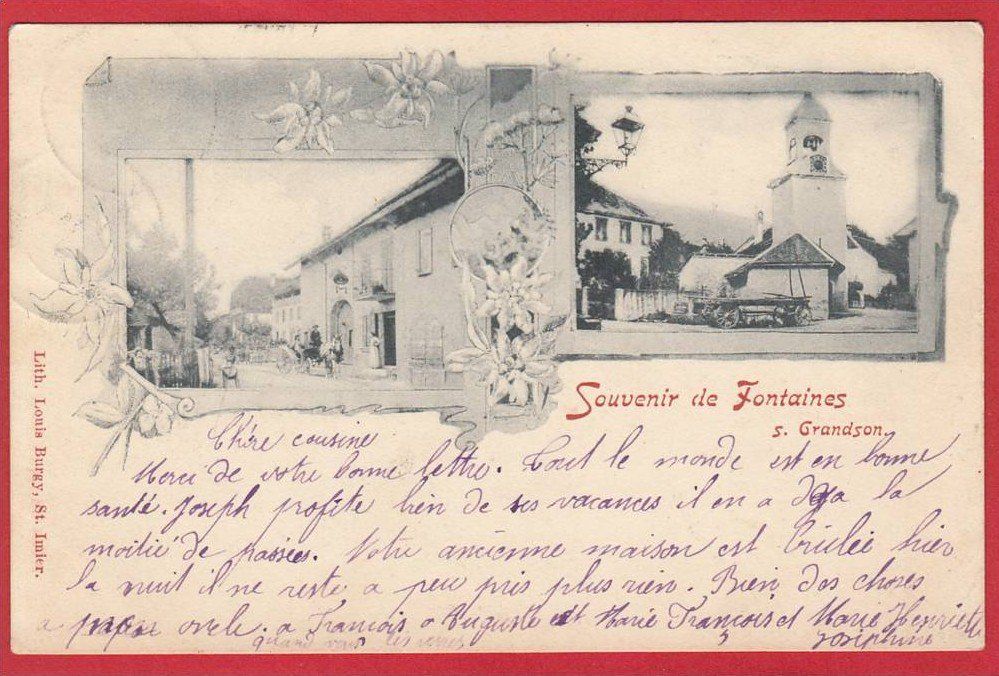 Souvenir de Fontaines
s. Grandson.
Chère cousine
Merci de votre bonne lettre. Tout le monde est en bonne
santé. Joseph profite bien de ses vacances il en a deja la
moitié de passées. Votre ancienne maison est brulée hier
la nuit il ne reste a peu pris plus rien. Bien des choses
a oncle. a Francois a Auguste et Marie Francois et Marie Henriette
quand vous les verrez Josephine
Lith. Louis Burgy, St. Imier.